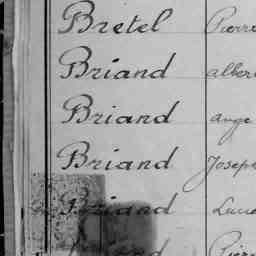 Bretel Pierre
Briand alber
Briand ange
Briand Joseph
Briand
Briand Pierre